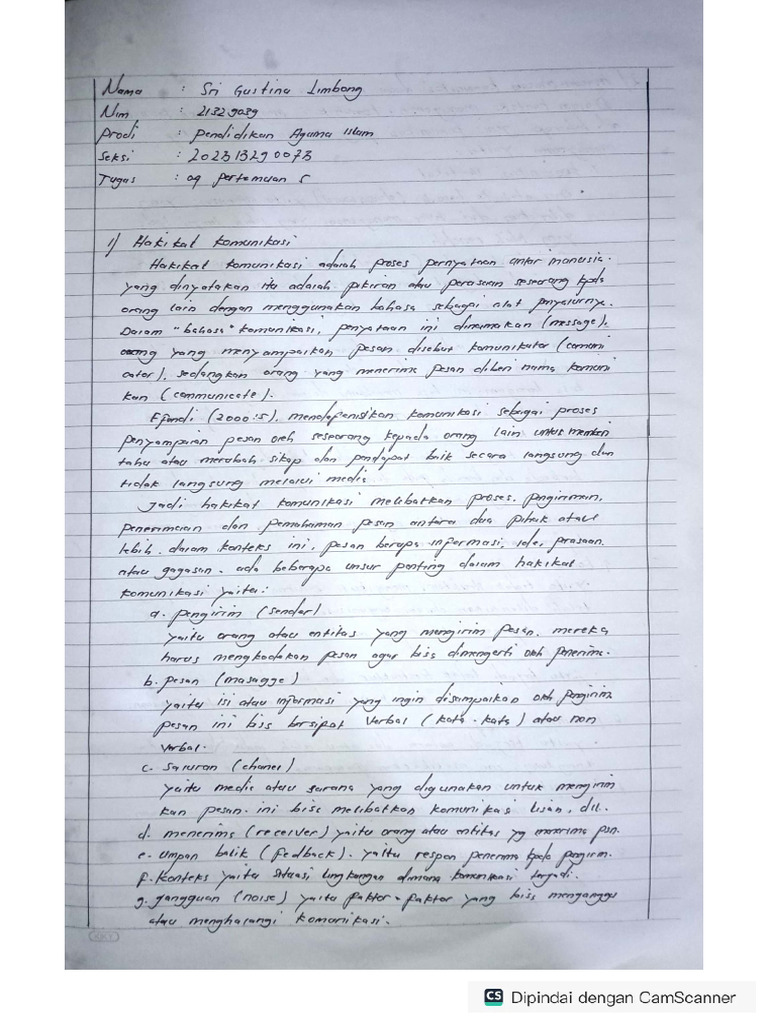 Nama : Sri Gustina Limbong
Nim : 21329039
Prodi : Pendidikan Agama Islam
Seksi : 202313290073
Tugas : 09 Pertemuan 5
1) Hakikat komunikasi
Hakikat komunikasi adalah proses pernyataan antar manusia.
yang dinyatakan itu adalah pikiran atau perasaan seseorang kpda
orang lain dengan menggunakan bahasa sebagai alat penyalurnya.
Dalam "bahasa" komunikasi, penyataan ini dinamakan (message),
orang yang menyampaikan pesan disebut komunikator (comuni
cator), sedangkan orang yang menerima pesan diberi nama komuni
kan (communicate).
Efendi (2000:5), mendefenisikan komunikasi sebagai proses
penyampaian pesan oleh seseorang kepada orang lain untuk memberi
tahu atau merubah sikap dan pendapat baik secara langsung dan
tidak langsung melalui media
Jadi hakikat komunikasi melibatkan proses, pengiriman,
penerimaan dan pemahaman pesan antara dua pihak atau
lebih. dalam konteks ini, pesan berupa informasi, ide, prasaan,
atau gagasan. ada beberapa unsur penting dalam hakikat
komunikasi yaitu:
a. pengirim (sendar)
yaitu orang atau entitas yang mengirim pesan. mereka
harus mengkodekan pesan agar bisa dimengerti oleh penerima.
b. pesan (masagge)
yaitu isi atau informasi yang ingin disampaikan oleh pengirim
pesan ini bisa bersipat verbal (kata-kata) atau non
verbal.
c. saluran (chanel)
yaitu media atau sarana yang digunakan untuk mengirim
kan pesan. ini bisa melibatkan komunikasi lisan, dll.
d. menerima (receiver) yaitu orang atau entitas yg menerima psn.
e. umpan balik (fedback). yaitu respon penerima kpda pengirim.
f. Konteks yaitu situasi lingkungan dimana komunikasi terjadi.
g. gangguan (noise) yaitu faktor-faktor yang bisa menganggu
atau menghalangi komunikasi.
CS Dipindai dengan CamScanner